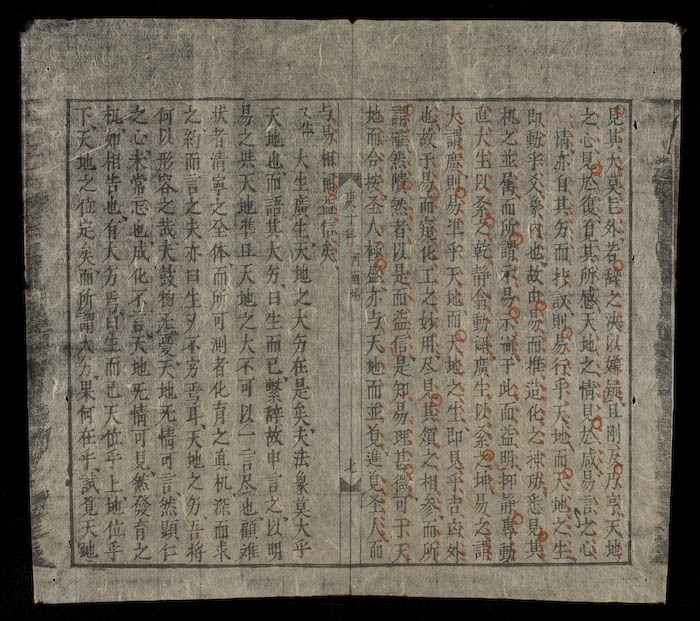 見其大莫巨外者辭之決以嫌疑且剛反乃亨天地
之心見於復自其所感天地之情見於咸易言之心
情亦自其夯而抄誤則易行乎天地而天地之生
即動乎爻象內也故由易而推造化之神功悉見其
机之並屬而所謂不易不可于此而益明抑靜專動
直大生以条之乾靜翕動闢廣生以条之坤易之謂
大謂廣則易準乎天地而天地之生即見乎吉凶外
也故于易而窺化工之妙用尽見其頌之相参而所
謂確然隤然者以是而益信是知易理甚微可于天
地而合按圣人極盛亦与天地而並着進見圣人而
与易相而益信矣
庚子科 河南場
七
又体 大生廣生天地之大夯在是矣夫法象莫大乎
天地也而語其大夯曰生而已繫辭故申言之以明
易之與天地準且天地之大不可以一言尽也顧难
狀者清寧之全体而所可測者化育之直机深而求
之約而言之夫亦曰生夕不穷焉耳天地之夯吾將
何以形容之哉夫鼓物无憂天地无情可言然顕仁
之心未常忘也成化不言天地无情可見然發育之
机如相告也有大夯焉曰生而已天位乎上地位乎
下天地之位定矣而所謂大夯果何在乎試覓天地